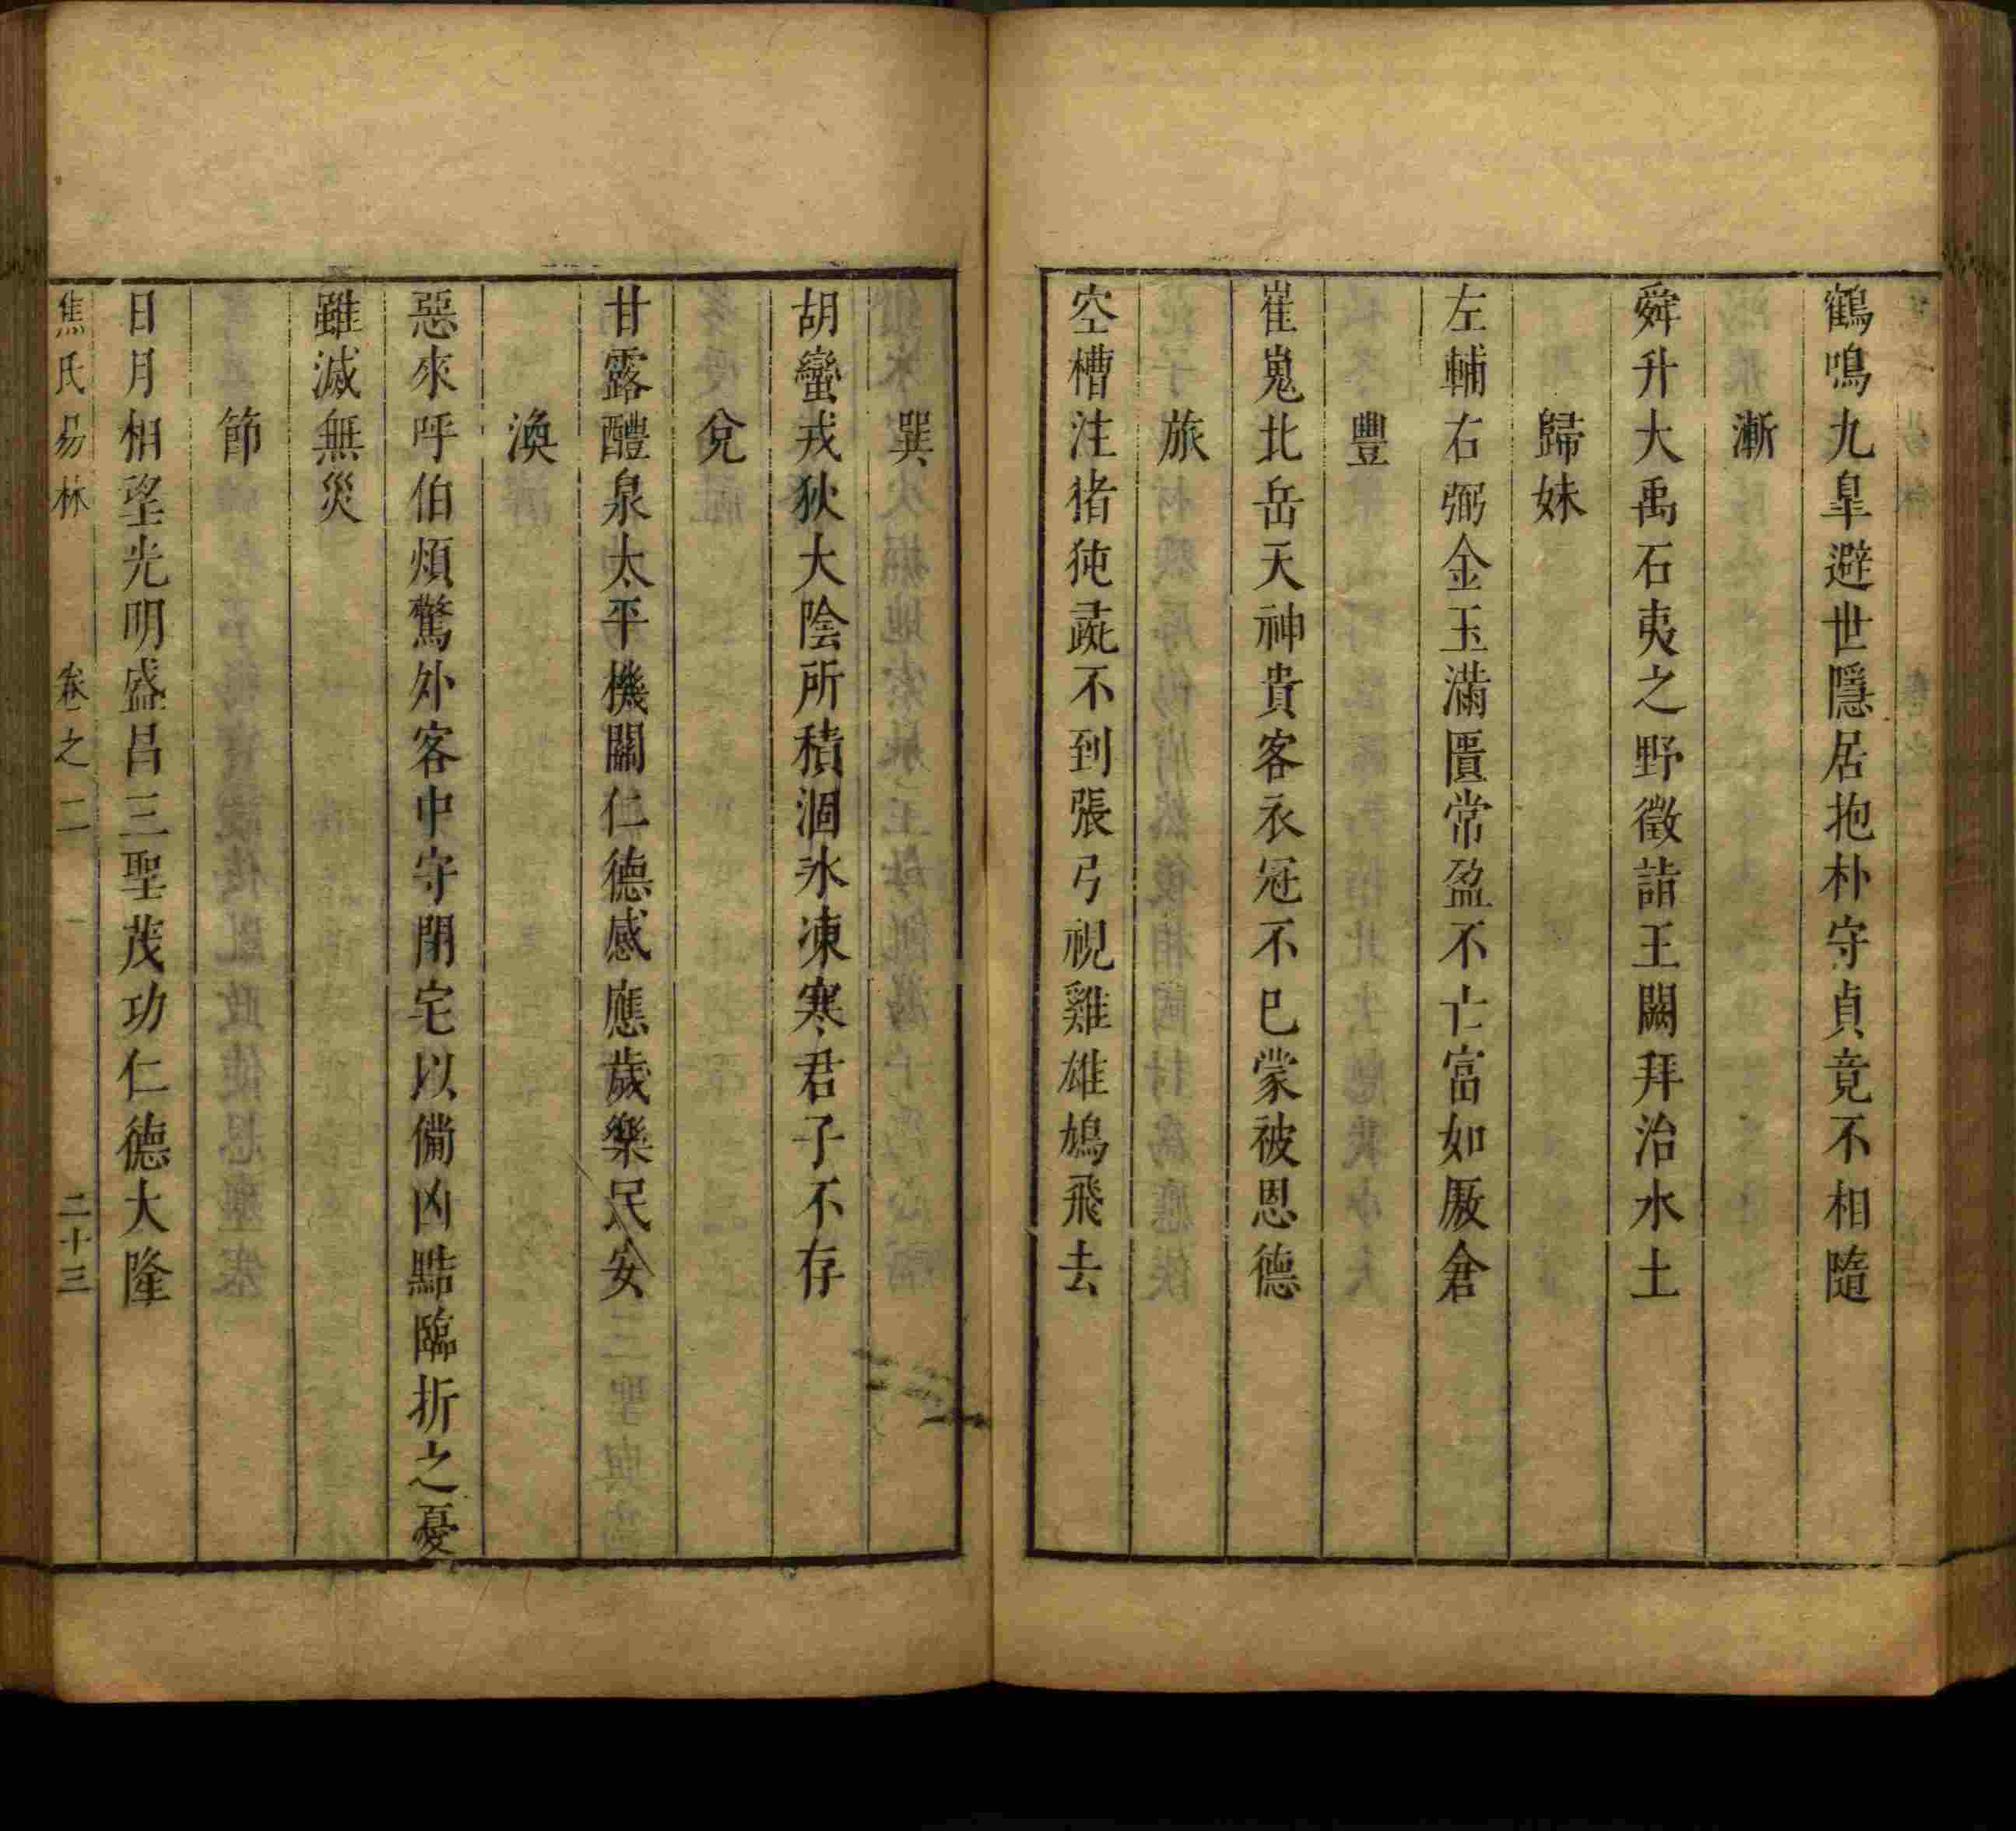 鶴鳴九皐避世隱居抱朴守貞竟不相隨
漸
舜升大禹石夷之野徵詣王闕拜治水土
歸妹
左輔右弼金玉滿匱常盈不亡富如厫倉
豐
崔嵬北岳天神貴客衣冠不巳蒙被恩德
旅
空槽注猪㹠彘不到張弓視雞雄鳩飛去
巽
胡蠻戎狄大陰所積涸氷凍寒君子不存
兌
甘露醴泉太平機關仁德感應歲樂民安
渙
惡來呼伯煩驚外客中守閉宅以備凶黠臨折之憂
雖滅無災
節
日月相望光明盛昌三聖茂功仁德大隆
焦氏易林 卷之二 二十三